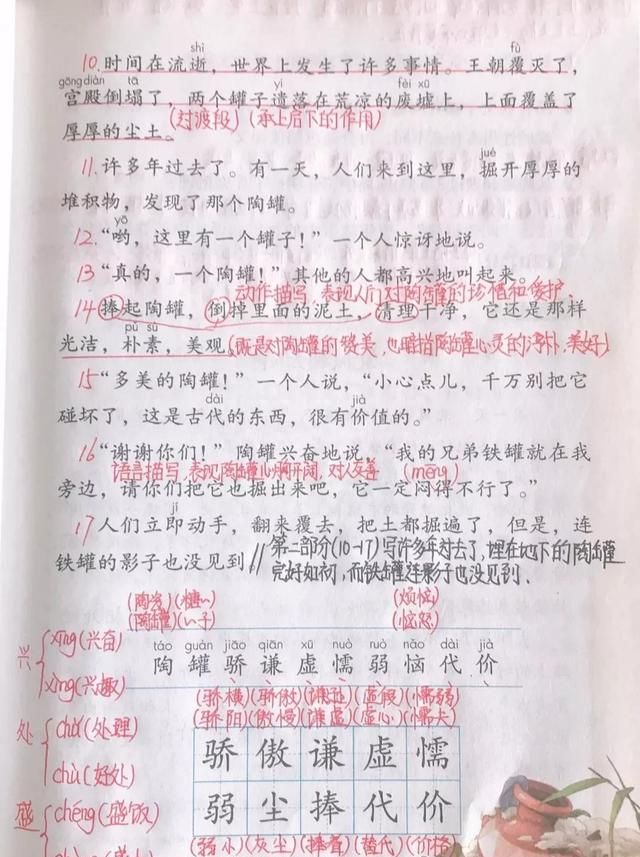 shì fù
10.时间在流逝，世界上发生了许多事情。王朝覆灭了，
gōng diàn tā yí fèi xū
宫殿倒塌了，两个罐子遗落在荒凉的废墟上，上面覆盖了
厚厚的尘土。(过渡段)(承上启下的作用)
jué
11.许多年过去了。有一天，人们来到这里，掘开厚厚的
堆积物，发现了那个陶罐。
yō
12.“哟，这里有一个罐子！”一个人惊讶地说。
13“真的，一个陶罐！”其他的人都高兴地叫起来。
动作描写，表现人们对陶罐的珍惜和爱护。
14捧起陶罐，倒掉里面的泥土，清理干净，它还是那样
pǔ sù
光洁，朴素，美观。(既是对陶罐的赞美，也暗指陶罐心灵的淳朴、美好)
15“多美的陶罐！”一个人说，“小心点儿，千万别把它
dài jià
碰坏了，这是古代的东西，很有价值的。”
16“谢谢你们！”陶罐兴奋地说，“我的兄弟铁罐就在我
语言描写，表现陶罐心胸开阔，对人友善 (mēng)
旁边，请你们把它也掘出来吧，它一定闷得不行了。”
jí
17人们立即动手，翻来覆去，把土都掘遍了，但是，连
铁罐的影子也没见到。// 第二部分(10-17)写许多年过去了，埋在地下的陶罐
完好如初，而铁罐连影子也没见到.
(陶瓷)(糖罐) (烦恼)
(陶罐)(罐子) (恼怒)
兴 xīng(兴奋)
táo guàn jiāo qiān xū nuò ruò nǎo dài jià
陶 罐 骄 谦 虚 懦 弱 恼 代 价
xìng(兴趣)
(骄横)(骄傲)(谦逊)(虚假)(懦弱)
(骄阳)(傲慢)(谦虚)(虚心)(懦夫)
处 chǔ(处理)
chù(好处)
骄 傲 谦 虚 懦
弱 尘 捧 代 价
盛 chéng(盛饭)
(弱小)(灰尘)(捧着)(替代)(价格)